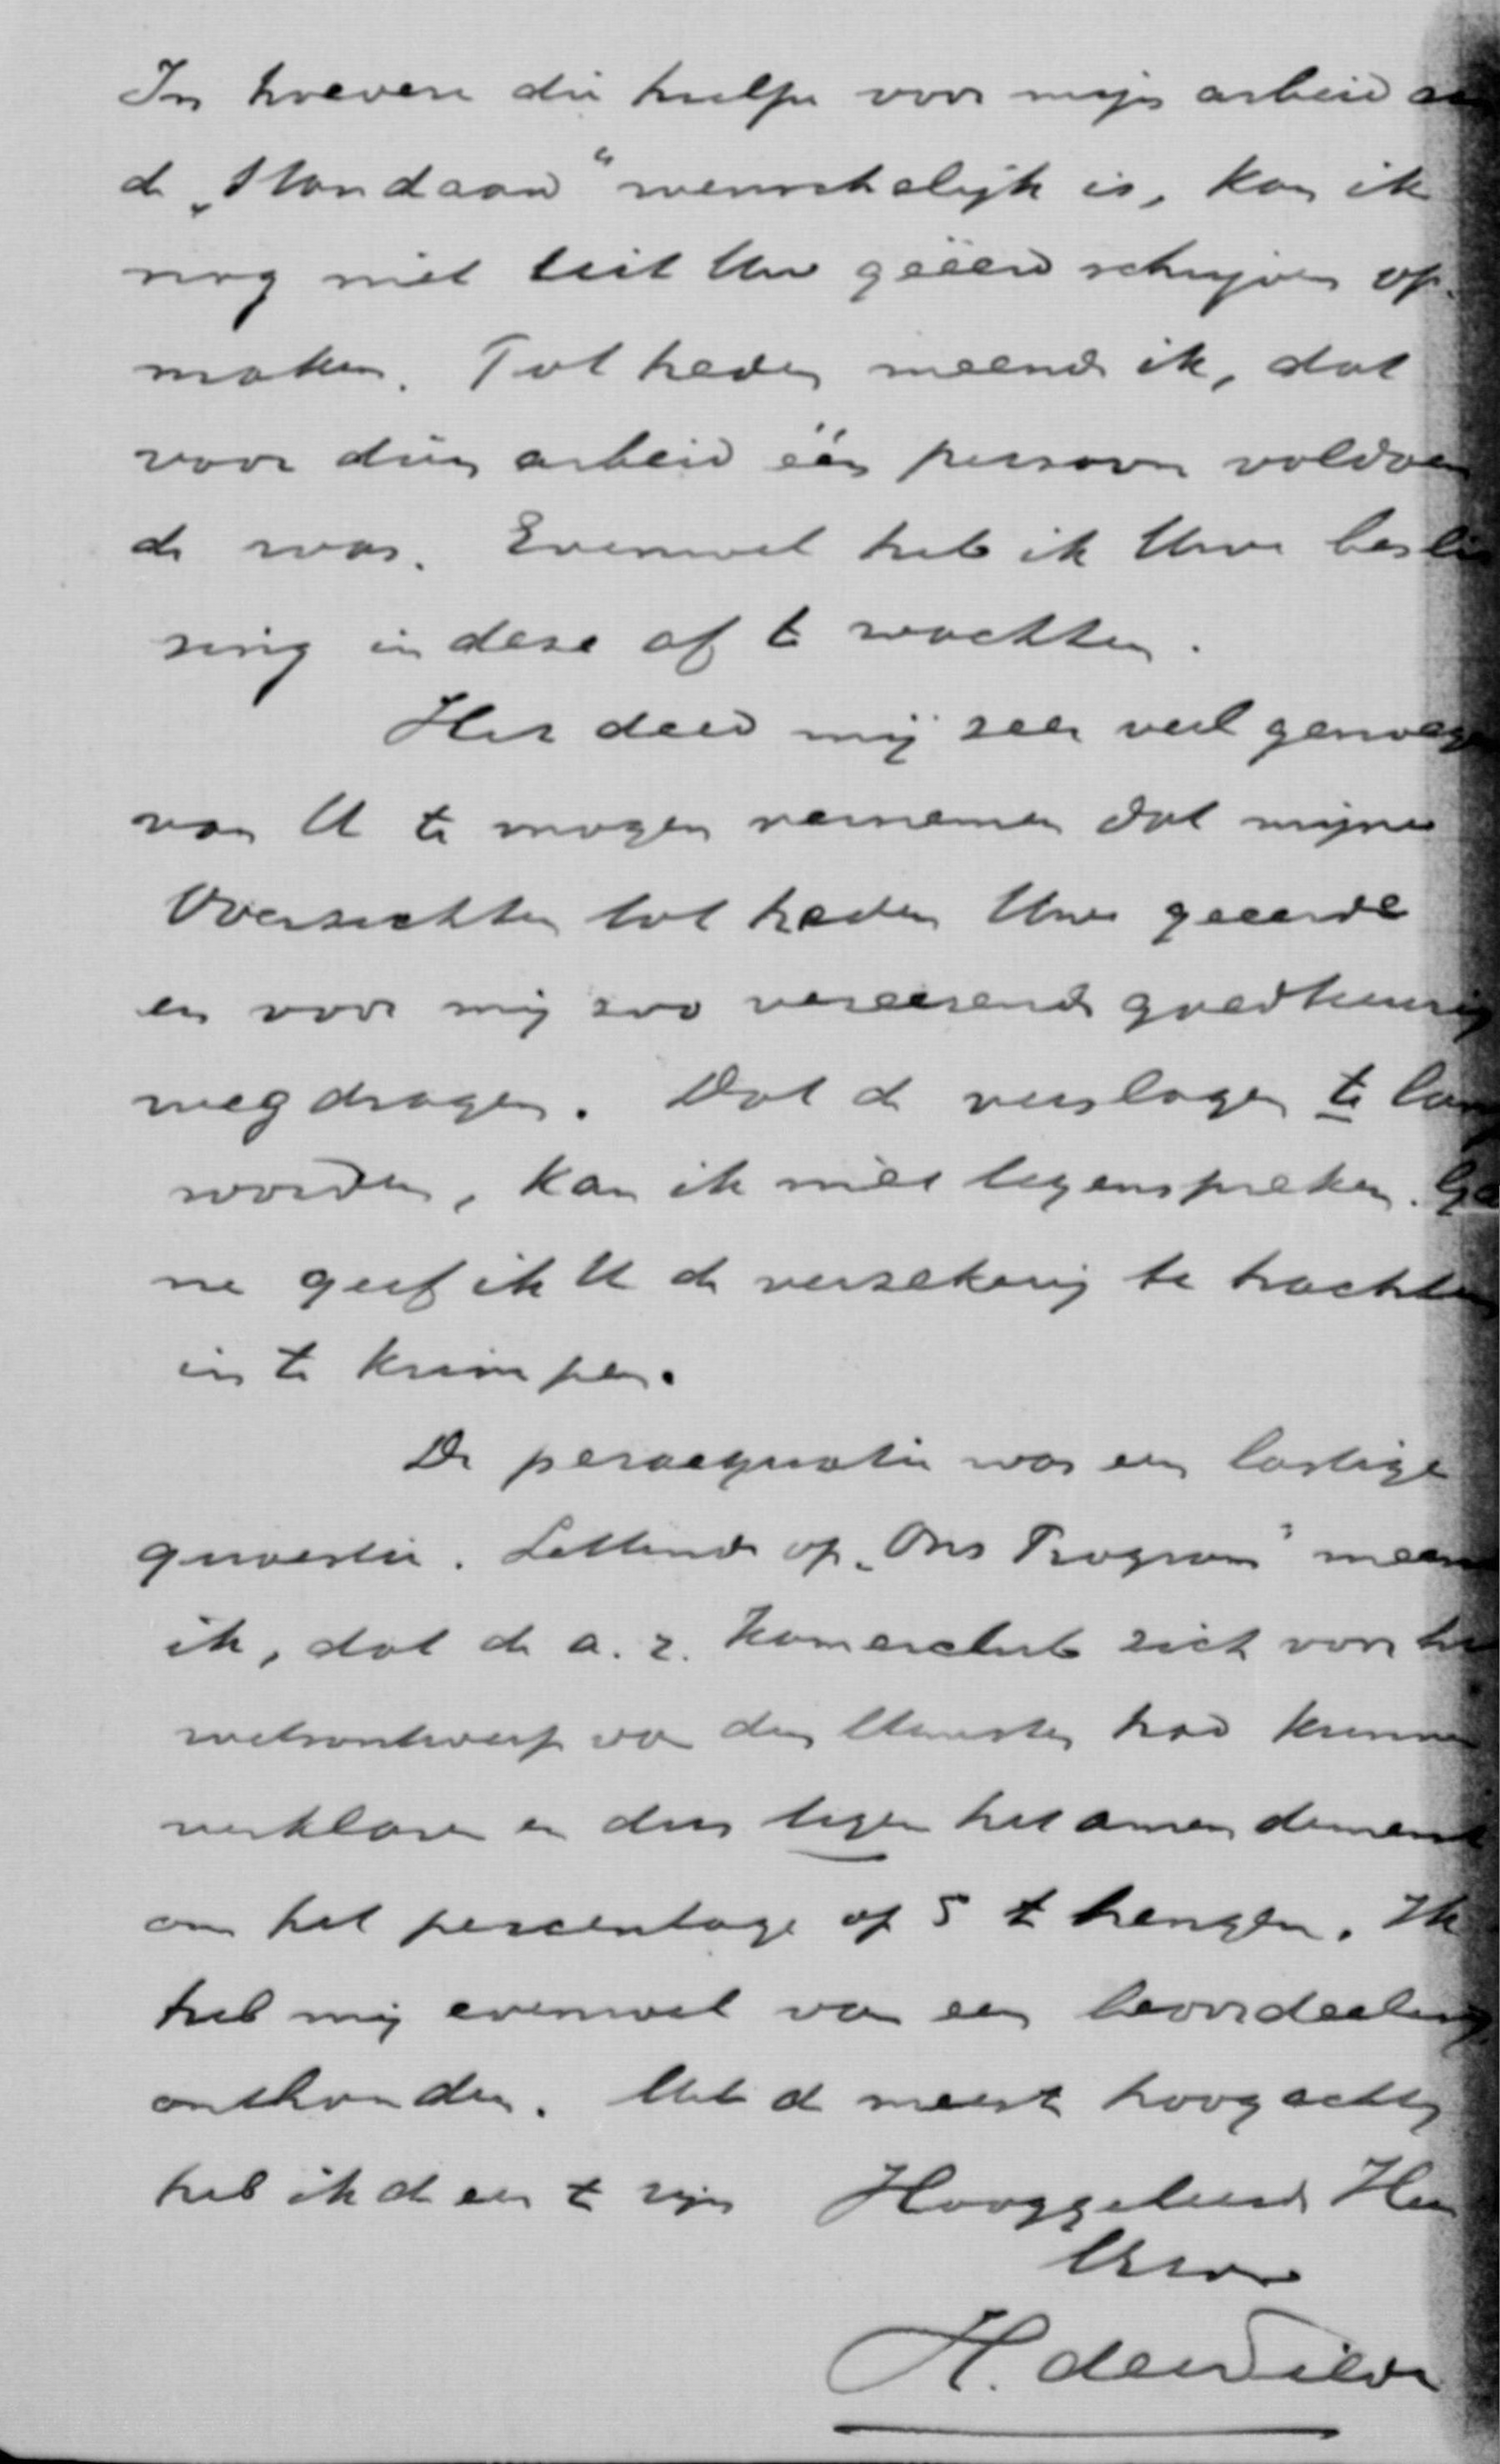 In hoeverre die hulp voor mijn arbeid aan
de „Standaard" wenschelijk is, kan ik
nog niet uit Uw geëerd schrijven op-
maken. Tot heden meende ik, dat
voor dien arbeid één persoon voldoen
de was. Evenwel heb ik Uwe beslis
sing in deze af te wachten.
Het deed mij zeer veel genoegen
van U te mogen vernemen dat mijne
Overzichten tot heden Uwe geeerde
en voor mij zoo vereerende goedkeuring
wegdragen. Dat de verslagen te lang
worden, kan ik niet tegenspreken. Gaar
ne geef ik U de verzekering te trachten
in te krimpen.
De peraequatie was een lastige
quaestie. Lettende op „Ons Program" meende
ik, dat de a. r. Kamerclub zich voor het
wetsontwerp van den Minister had kunnen
verklaren en dus tegen het amendement
om het percentage op 5 te brengen. Ik
heb mij evenwel van een beoordeeling
onthouden. Met de meeste hoogachting
heb ik de eer te zijn Hooggeleerde Heer
Uw
H. de Wilde